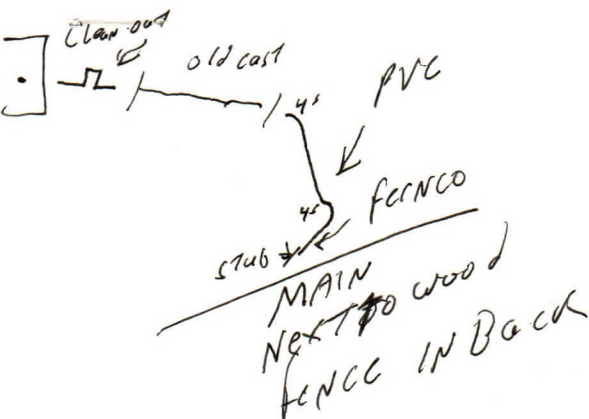 Clean out
old cast
PVC
45
45
FERNCO
stub
MAIN
NEXT TO WOOD
FENCE IN BACK